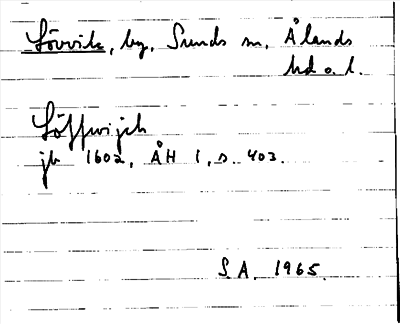 Lövvik, by, Sunds sn, Ålands
hd o. l.
Löffwijch
jb 1602, ÅH 1, s. 403.
S A. 1965.